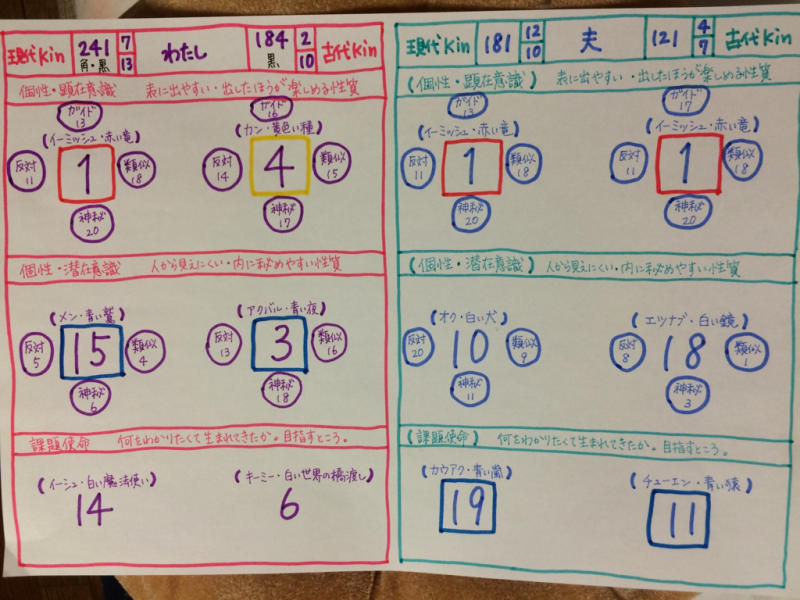 現代Kin 241 7 わたし 184 2 古代Kin
角・黒 13 黒 10
個性・顕在意識 表に出やすい・出したほうが楽しめる性質
ガイド 13 ガイド 16
(イーミッシュ・赤い竜) (カン・黄色い種)
反対 11 1 類似 18 反対 14 4 類似 15
神秘 20 神秘 17
個性・潜在意識 人から見えにくい・内に秘めやすい性質
(メン・青い鷲) (アクバル・青い夜)
反対 5 15 類似 4 反対 13 3 類似 16
神秘 6 神秘 18
課題使命 何をわかりたくて生まれてきたか。目指すところ。
(イーシュ・白い魔法使い) (キーミー・白い世界の橋渡し)
14 6
現代Kin 181 12 夫 121 4 古代Kin
10 7
(個性・顕在意識) 表に出やすい・出したほうが楽しめる性質
ガイド 13 ガイド 17
(イーミッシュ・赤い竜) (イーミッシュ・赤い竜)
反対 11 1 類似 18 反対 11 1 類似 18
神秘 20 神秘 20
(個性・潜在意識) 人から見えにくい・内に秘めやすい性質
(オク・白い犬) (エツナブ・白い鏡)
反対 20 10 類似 9 反対 8 18 類似 1
神秘 11 神秘 3
(課題使命) 何をわかりたくて生まれてきたか。目指すところ。
(カウアク・青い嵐) (チューエン・青い猿)
19 11